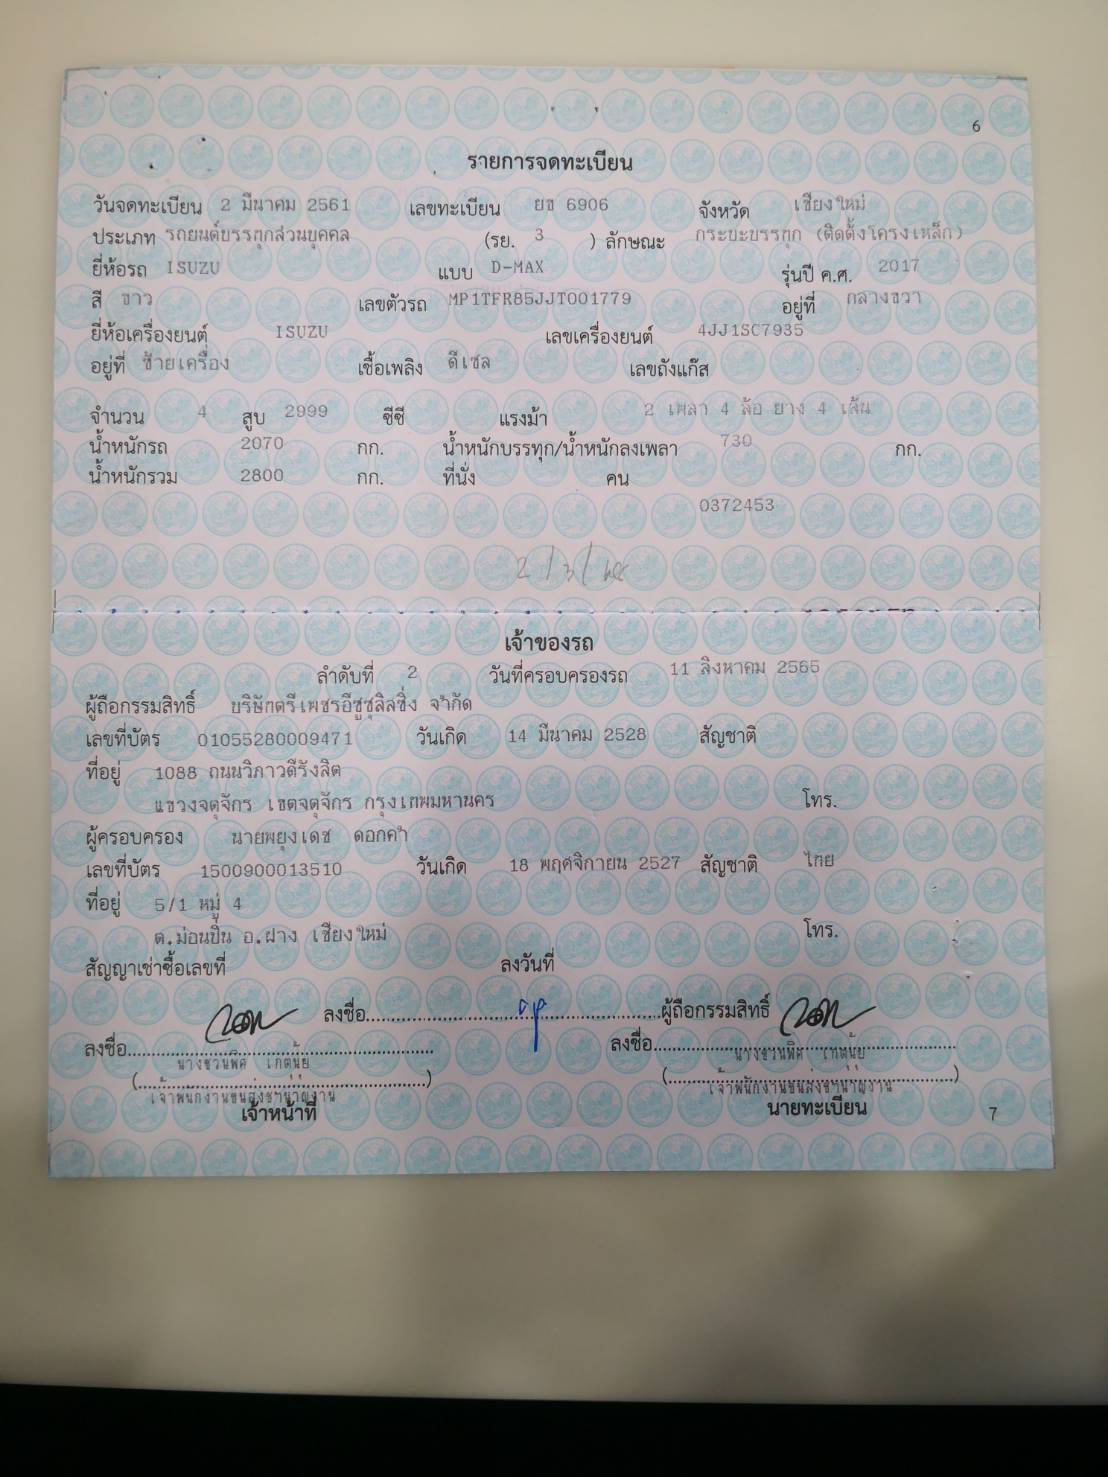 6
รายการจดทะเบียน
วันจดทะเบียน 2 มีนาคม 2561 เลขทะเบียน ยข 6906 จังหวัด เชียงใหม่
ประเภท รถยนต์บรรทุกส่วนบุคคล (รย. 3 ) ลักษณะ กระบะบรรทุก (ติดตั้งโครงเหล็ก)
ยี่ห้อรถ ISUZU แบบ D-MAX รุ่นปี ค.ศ. 2017
สี ขาว เลขตัวรถ MP1TFR85JJT001779 อยู่ที่ กลางขวา
ยี่ห้อเครื่องยนต์ ISUZU เลขเครื่องยนต์ 4JJ1SC7935
อยู่ที่ ซ้ายเครื่อง เชื้อเพลิง ดีเซล เลขถังแก๊ส
จำนวน 4 สูบ 2999 ซีซี แรงม้า 2 เพลา 4 ล้อ ยาง 4 เส้น
น้ำหนักรถ 2070 กก. น้ำหนักบรรทุก/น้ำหนักลงเพลา 730 กก.
น้ำหนักรวม 2800 กก. ที่นั่ง คน
0372453
เจ้าของรถ
ลำดับที่ 2 วันที่ครอบครองรถ 11 สิงหาคม 2565
ผู้ถือกรรมสิทธิ์ บริษัทตรีเพชรอีซูซุลิสซิ่ง จำกัด
เลขที่บัตร 01055280009471 วันเกิด 14 มีนาคม 2528 สัญชาติ
ที่อยู่ 1088 ถนนวิภาวดีรังสิต
แขวงจตุจักร เขตจตุจักร กรุงเทพมหานคร โทร.
ผู้ครอบครอง นายพยุงเดช ดอกคำ
เลขที่บัตร 1500900013510 วันเกิด 18 พฤศจิกายน 2527 สัญชาติ ไทย
ที่อยู่ 5/1 หมู่ 4
ต.ม่อนปิ่น อ.ฝาง เชียงใหม่ โทร.
สัญญาเช่าซื้อเลขที่ ลงวันที่
ลงชื่อ ผู้ถือกรรมสิทธิ์
ลงชื่อ ลงชื่อ
นางชวนพิศ เกตุนุ้ย นางชวนพิศ เกตุนุ้ย
เจ้าพนักงานขนส่งชำนาญงาน เจ้าพนักงานขนส่งชำนาญงาน
เจ้าหน้าที่ นายทะเบียน
7